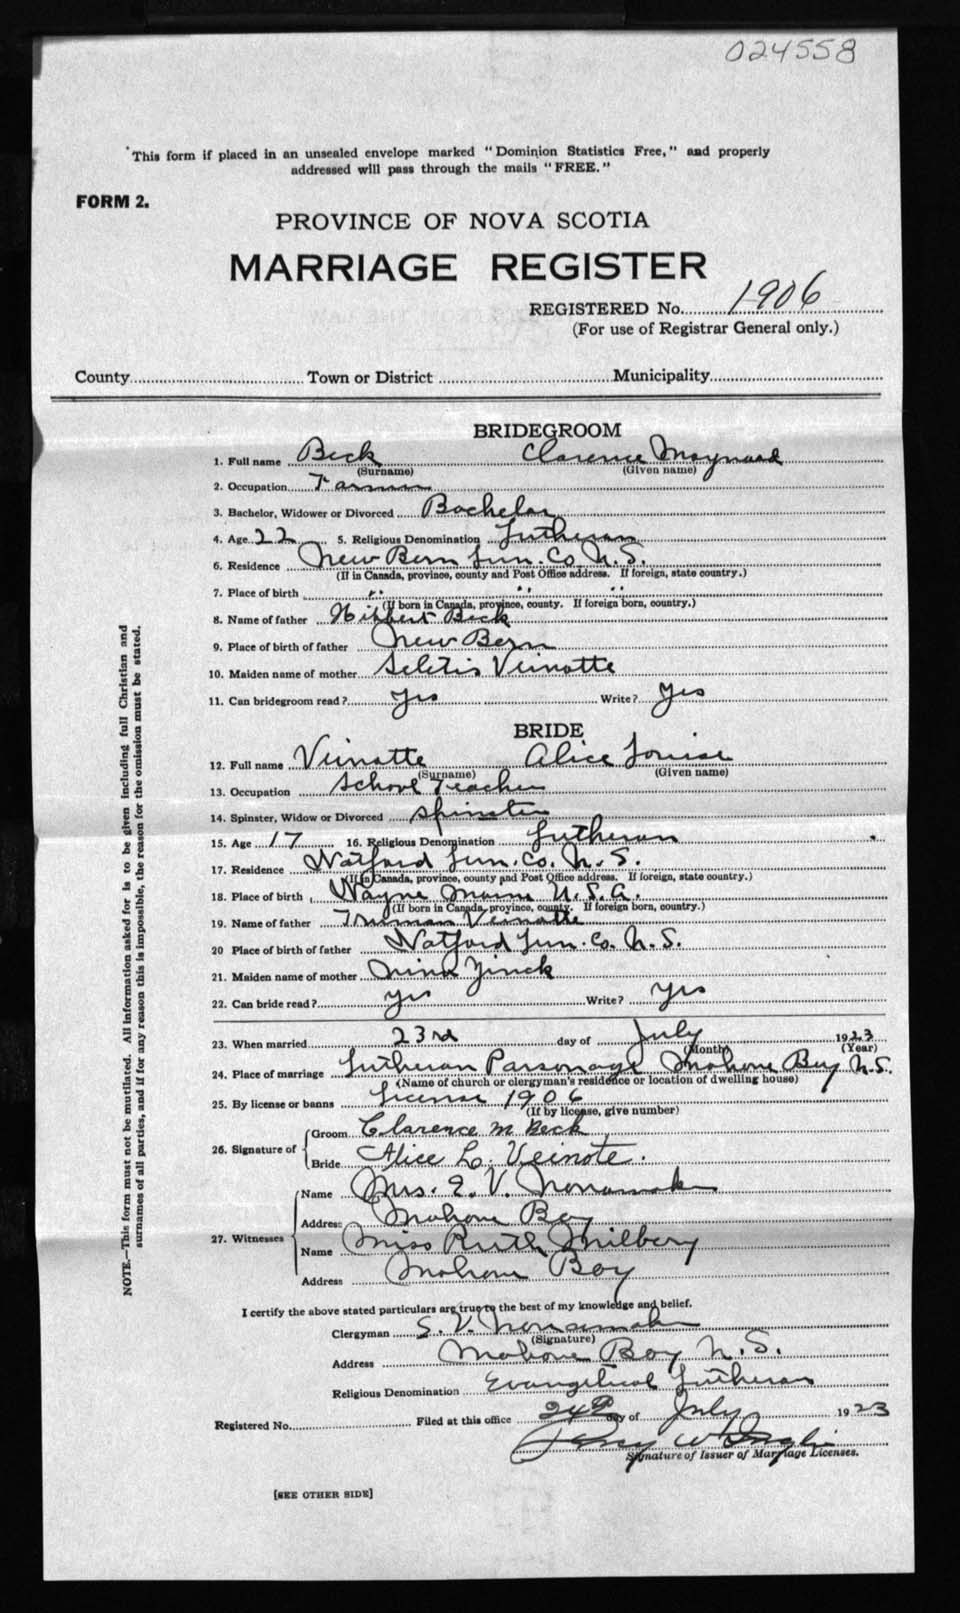 024558
"This form if placed in an unsealed envelope marked "Dominion Statistics Free," and properly
addressed will pass through the mails "FREE."
FORM 2.
PROVINCE OF NOVA SCOTIA
MARRIAGE REGISTER
REGISTERED No. 1906
(For use of Registrar General only.)
County Town or District Municipality
BRIDEGROOM
1. Full name Beck Clarence Maynard
(Surname) (Given name)
2. Occupation Farmer
3. Bachelor, Widower or Divorced Bachelor
4. Age 22 5. Religious Denomination Lutheran
6. Residence New Bern Lun. Co. N.S.
(If in Canada, province, county and Post Office address. If foreign, state country.)
7. Place of birth " " "
(If born in Canada, province, county. If foreign born, country.)
8. Name of father Hibbert Beck
9. Place of birth of father New Bern
10. Maiden name of mother Veinotte
11. Can bridegroom read? Yes Write? Yes
BRIDE
12. Full name Veinotte Alice Louise
(Surname) (Given name)
13. Occupation School Teacher
14. Spinster, Widow or Divorced Spinster
15. Age 17 16. Religious Denomination Lutheran
17. Residence Watford Lun. Co. N.S.
(If in Canada, province, county and Post Office address. If foreign, state country.)
18. Place of birth Wayne Maine U.S.A.
(If born in Canada, province, county. If foreign born, country.)
19. Name of father Truman Veinotte
20 Place of birth of father Watford Lun. Co. N.S.
21. Maiden name of mother Nina Zinck
22. Can bride read? Yes Write? Yes
23. When married 23rd day of July 1923
(Month) (Year)
24. Place of marriage Lutheran Parsonage Mahone Bay N.S.
(Name of church or clergyman's residence or location of dwelling house)
25. By license or banns License 1906
(If by license, give number)
26. Signature of Groom Clarence M Beck
Bride Alice L. Veinote.
27. Witnesses Name Mrs. S. V. Nonamaker
Address Mahone Bay
Name Miss Ruth Milbery
Address Mahone Bay
I certify the above stated particulars are true to the best of my knowledge and belief.
Clergyman S. V. Nonamaker
(Signature)
Address Mahone Bay N.S.
Religious Denomination Evangelical Lutheran
Registered No. Filed at this office 24th day of July 1923
Signature of Issuer of Marriage Licenses.
[SEE OTHER SIDE]
NOTE.—This form must not be mutilated. All information asked for is to be given including full Christian and
surnames of all parties, and if for any reason this is impossible, the reason for the omission must be stated.